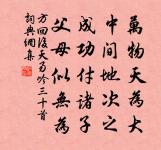 萬物天為大
中間地次之
成功付諸子
父母似無為
方回後天易吟三十首
詞典網集